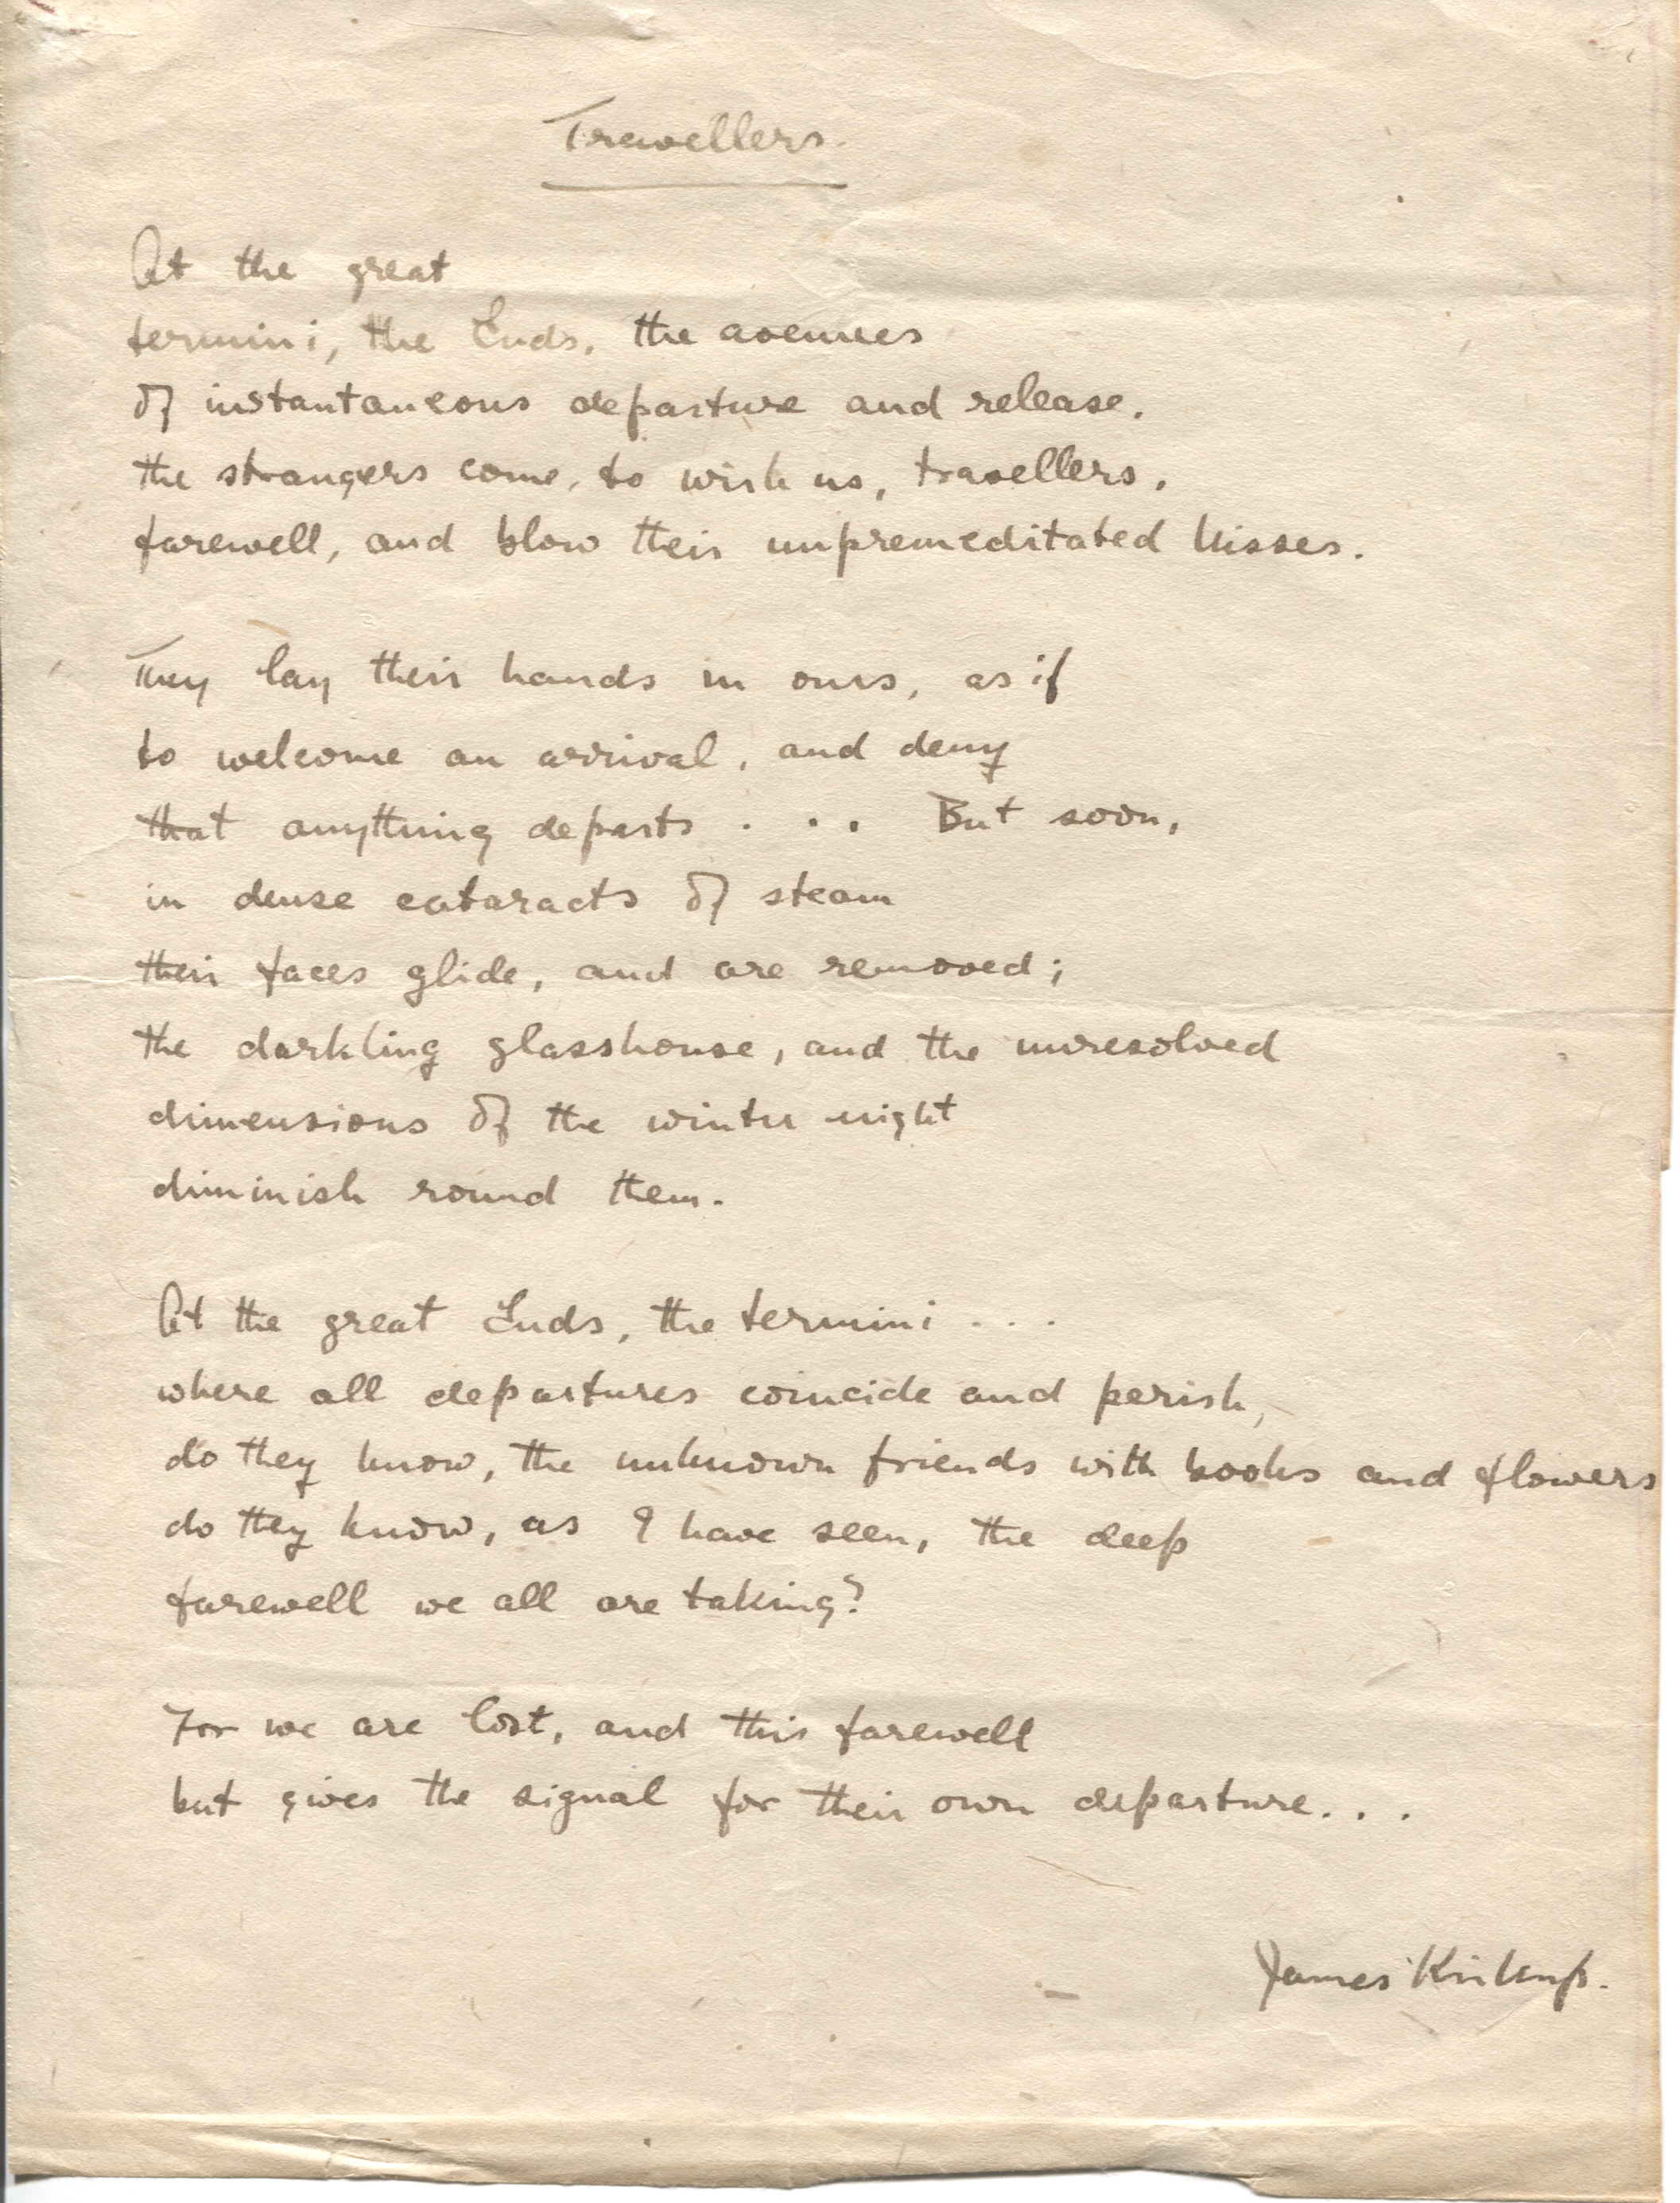 Travellers.
At the great
termini, the Ends, the avenues
of instantaneous departure and release,
the strangers come, to wish us, travellers,
farewell, and blow their unpremeditated kisses.
They lay their hands in ours, as if
to welcome an arrival, and deny
that anything departs . . . But soon,
in dense cataracts of steam
their faces glide, and are removed;
the darkling glasshouse, and the unresolved
dimensions of the winter night
diminish round them.
At the great Ends, the termini . . .
where all departures coincide and perish,
do they know, the unknown friends with books and flowers
do they know, as I have seen, the deep
farewell we all are taking?
For we are lost, and this farewell
but gives the signal for their own departure. . .
James Kirkup.